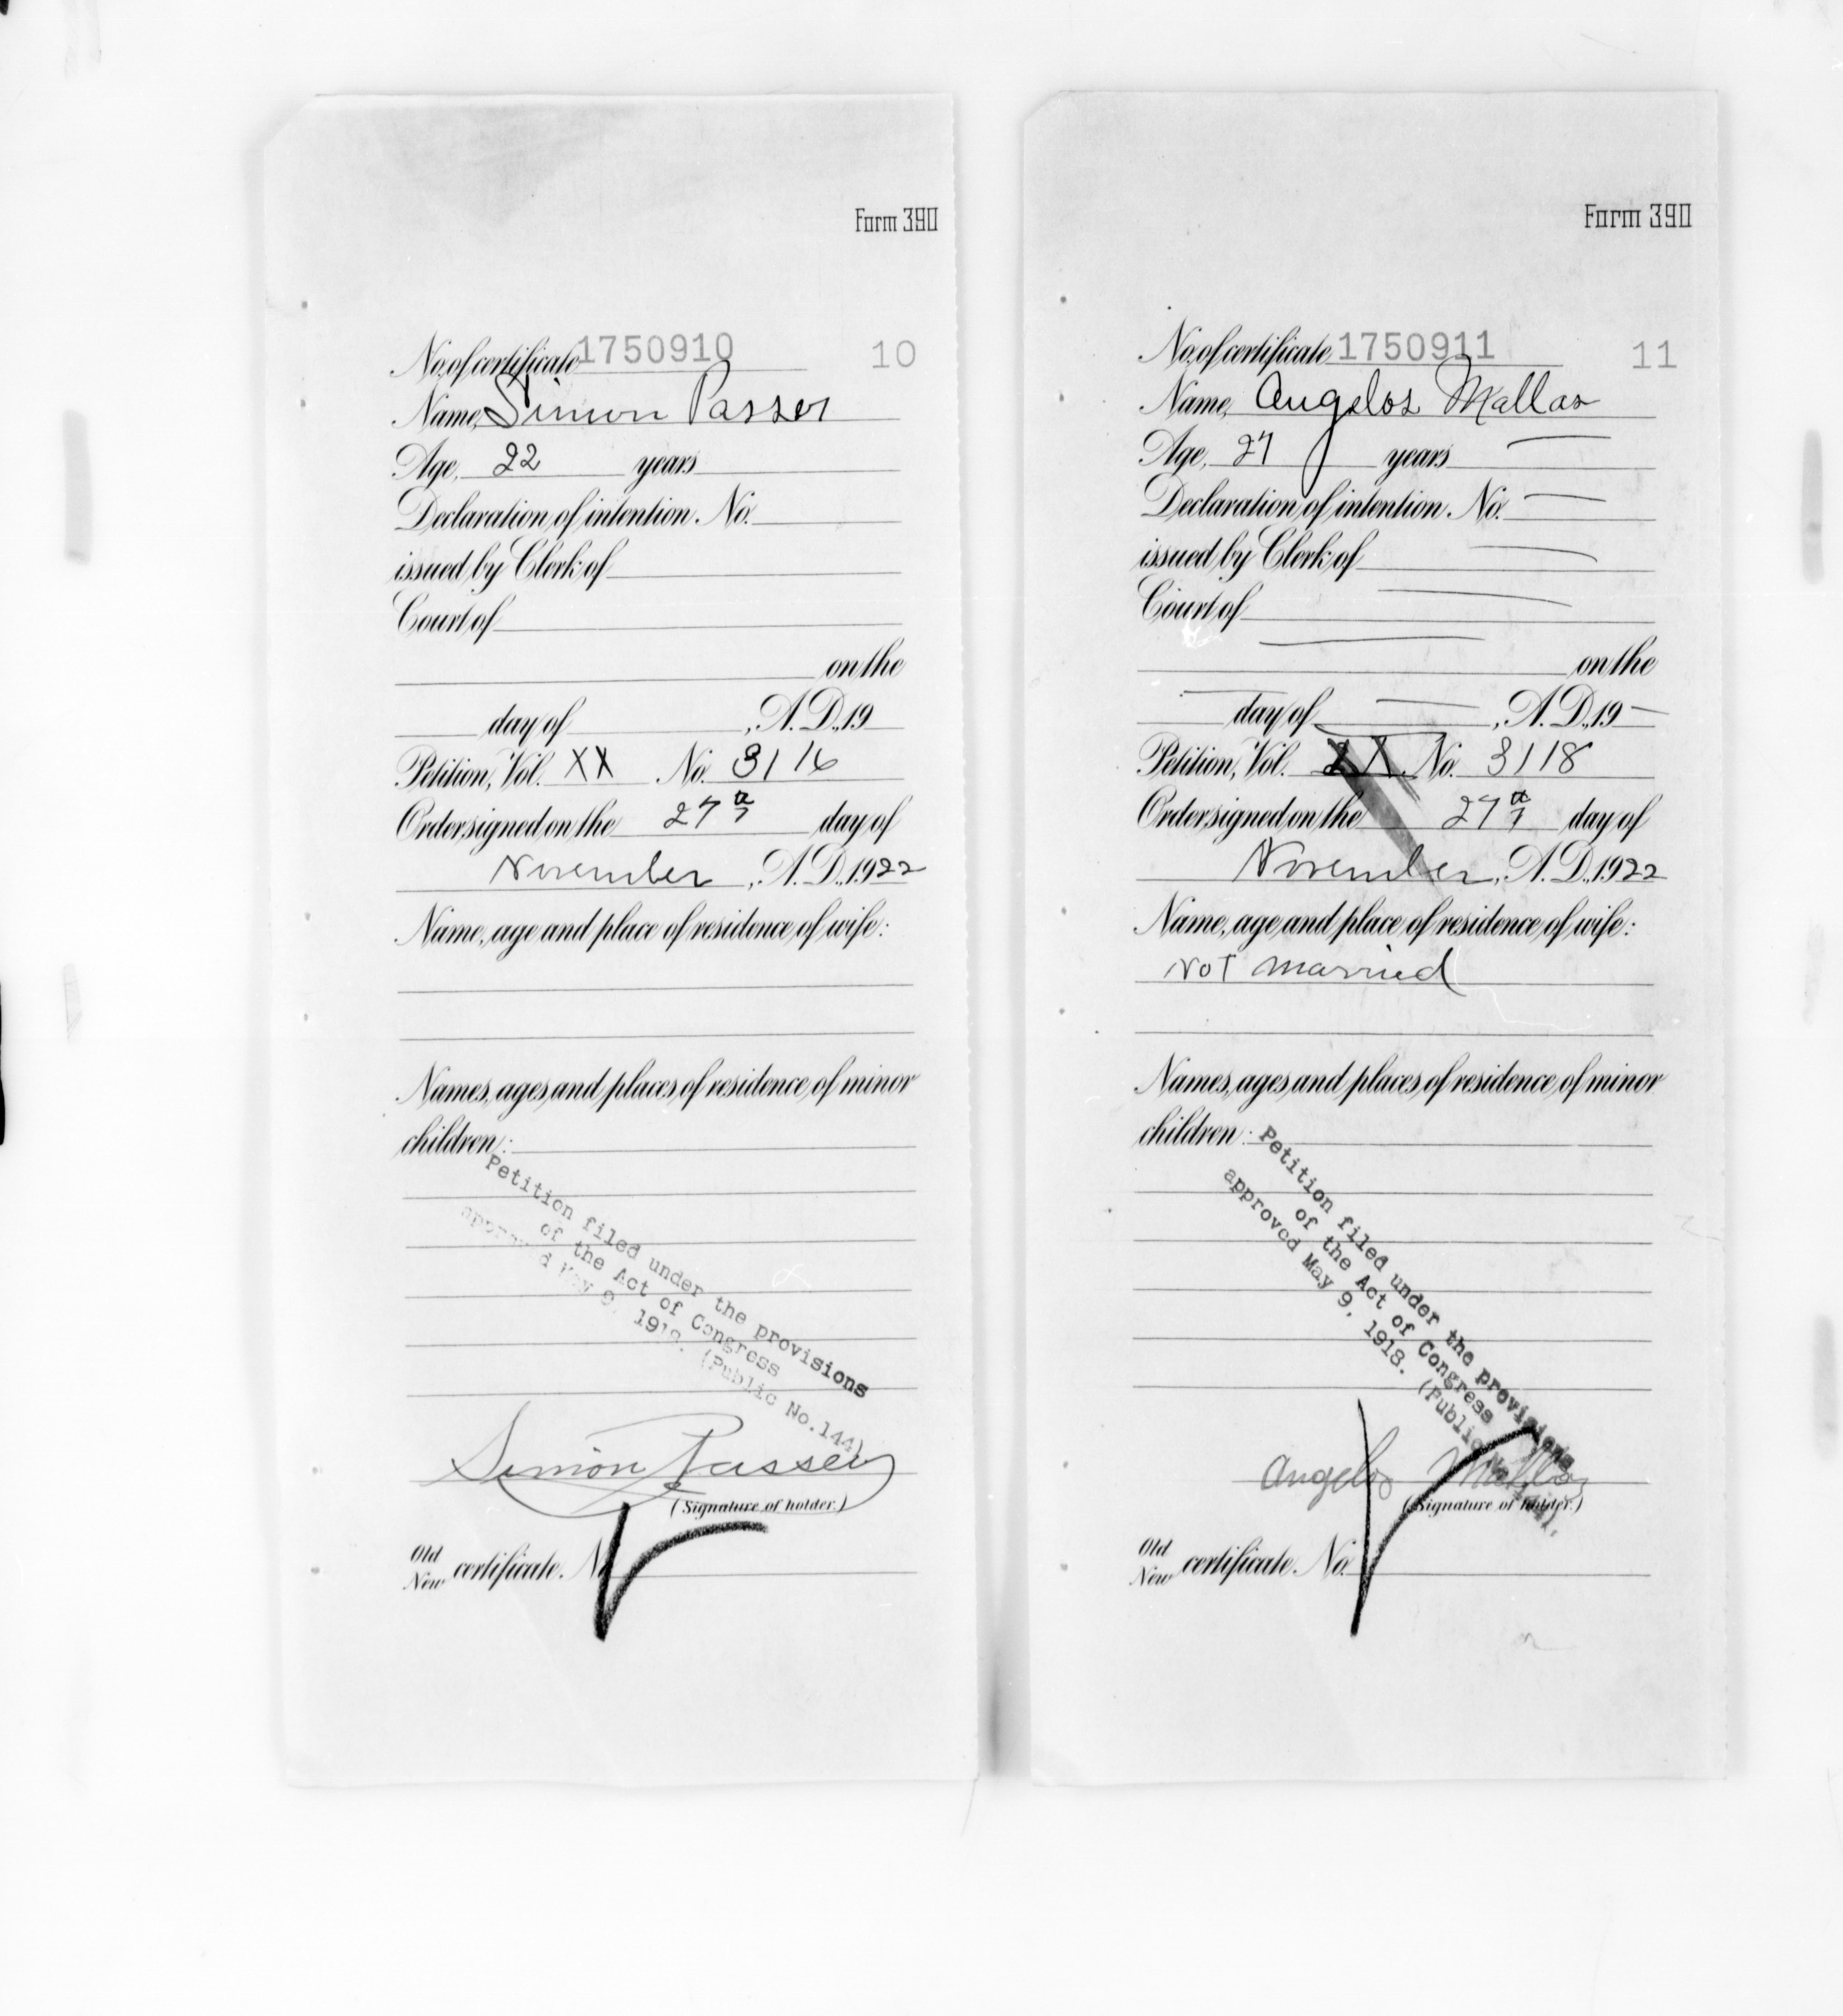 Form 390
No. of certificate 1750910 10
Name, Simon Passer
Age, 22 years
Declaration of intention, No.
issued by Clerk of
Court of
on the
day of , A.D., 19
Petition, Vol. XX No. 3116
Order signed on the 27th day of
November , A.D., 1922
Name, age and place of residence of wife:
Names, ages and places of residence of minor
children:
Petition filed under the provisions
of the Act of Congress
approved May 9, 1918. (Public No.144)
Simon Passer
(Signature of holder.)
Old
New certificate. No.
Form 390
No. of certificate 1750911 11
Name, Angelos Mallas
Age, 27 years
Declaration of intention, No.
issued by Clerk of
Court of
on the
day of , A.D., 19
Petition, Vol. XX No. 3118
Order signed on the 27th day of
November, A.D., 1922
Name, age and place of residence of wife:
Not married
Names, ages and places of residence of minor
children:
Petition filed under the provisions
of the Act of Congress
approved May 9, 1918. (Public
Angelos Mallas
(Signature of holder.)
Old
New certificate. No.